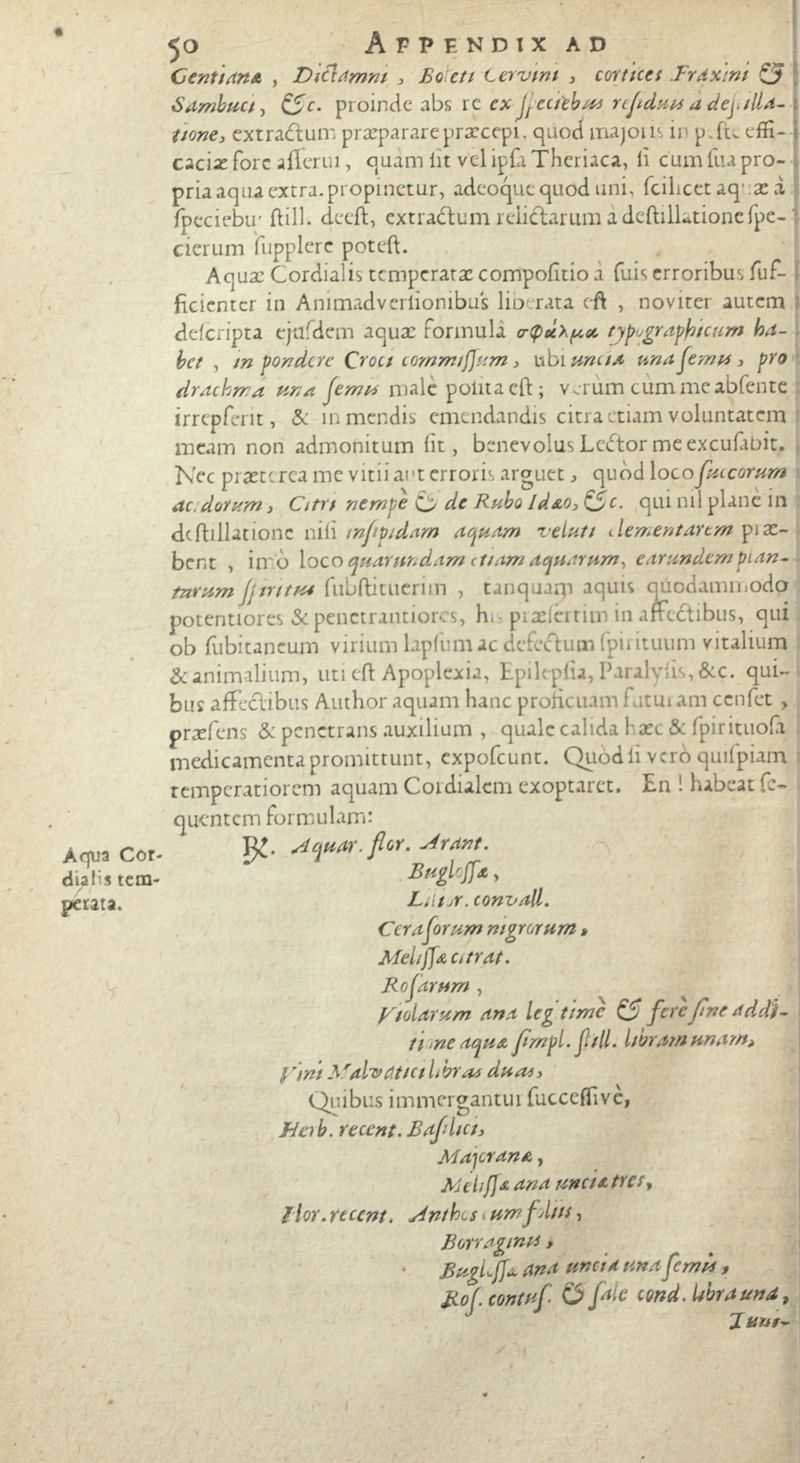 50 APPENDIX AD
Gentianæ , Dictamni , Boleti Cervini , cortices Fraxini &
Sambuci, &c. proinde abs re ex speciebus residuis a destilla-
tione, extractum præparare præcepi, quod majoris in p. ft. effi-
caciæ fore asserui, quàm sit vel ipsa Theriaca, si cum sua pro-
pria aqua extra. propinetur, adeoque quod uni, scilicet aquæ à
speciebus still. deest, extractum relictarum à destillatione spe-
cierum supplere potest.
Aquæ Cordialis temperatæ compositio à suis erroribus suf-
ficienter in Animadversionibus liberata est , noviter autem
descripta ejusdem aquæ formula σφάλμα typographicum ha-
bet , in pondere Croci commissum, ubi uncia una semis, pro
drachma una semis malè posita est; verùm cùm me absente
irrepserit, & in mendis emendandis citra etiam voluntatem
meam non admonitum sit, benevolus Lector me excusabit.
Nec præterea me vitii aut erroris arguet, quòd loco succorum
acidorum, Citri nempe & de Rubo Idæo, &c. qui nil planè in
destillatione nisi insipidam aquam veluti elementarem præ-
bent , imò loco quarundam etiam aquarum, earundem plan-
tarum spiritus substituerim , tanquam aquis quodammodo
potentiores & penetrantiores, his præsertim in affectibus, qui
ob subitaneum virium lapsum ac defectum spirituum vitalium
& animalium, uti est Apoplexia, Epilepsia, Paralysis, &c. qui-
bus affectibus Author aquam hanc proficuam futuram censet ,
præsens & penetrans auxilium , quale calida hæc & spirituosa
medicamenta promittunt, exposcunt. Quòd si verò quispiam
temperatiorem aquam Cordialem exoptaret. En ! habeat se-
quentem formulam:
Aqua Cor-
dialis tem-
perata.
℞. Aquar. flor. Arant.
Buglossæ,
Lilior. convall.
Cerasorum nigrorum,
Melissæ citrat.
Rosarum ,
Violarum ana legitimè & ferè sine addi-
tione aquæ simpl. still. libram unam,
Vini Malvatici libras duas,
Quibus immergantur successivè,
Herb. recent. Basilici,
Majoranæ,
Melissæ ana unciæ tres,
Flor. recent. Anthos cum foliis,
Borraginis,
Buglossæ ana uncia una semis,
Ros. contus. & sale cond. libra una,